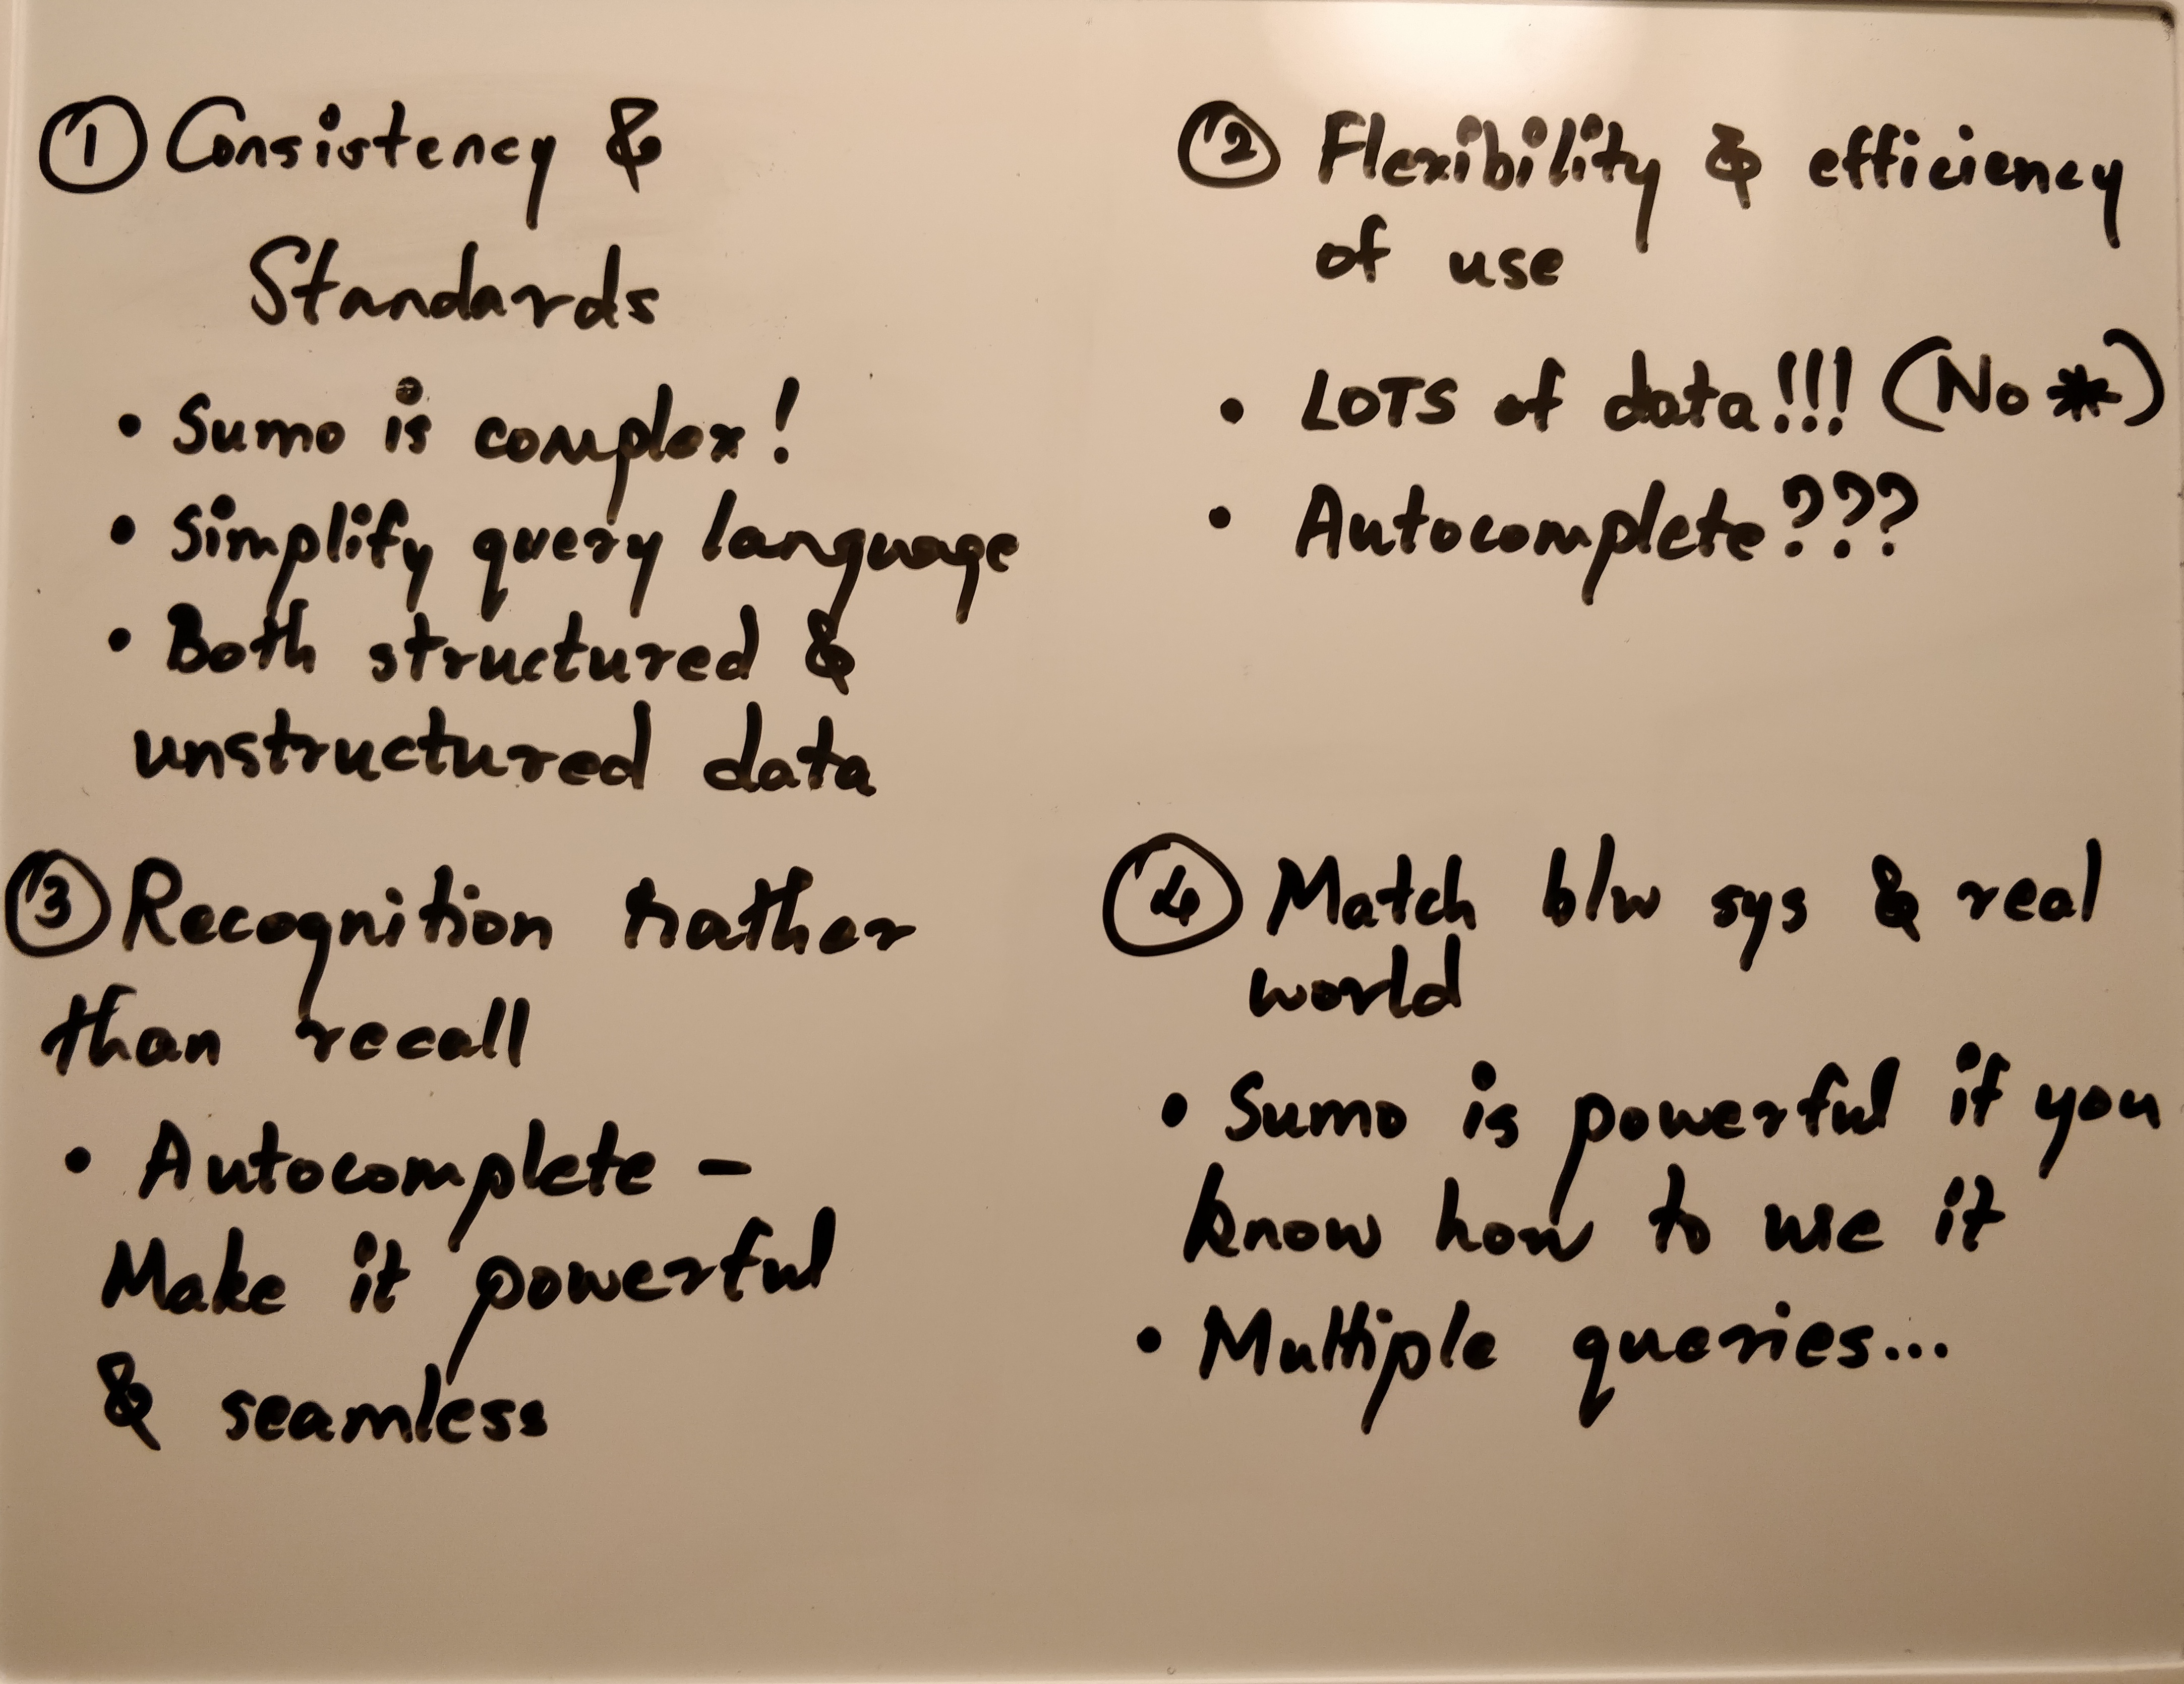 ① Consistency &
Standards
• Sumo is complex!
• Simplify query language
• Both structured &
unstructured data
② Flexibility & efficiency
of use
• LOTS of data!!! (No *)
• Autocomplete???
③ Recognition rather
than recall
• Autocomplete -
Make it powerful
& seamless
④ Match b/w sys & real
world
• Sumo is powerful if you
know how to use it
• Multiple queries...